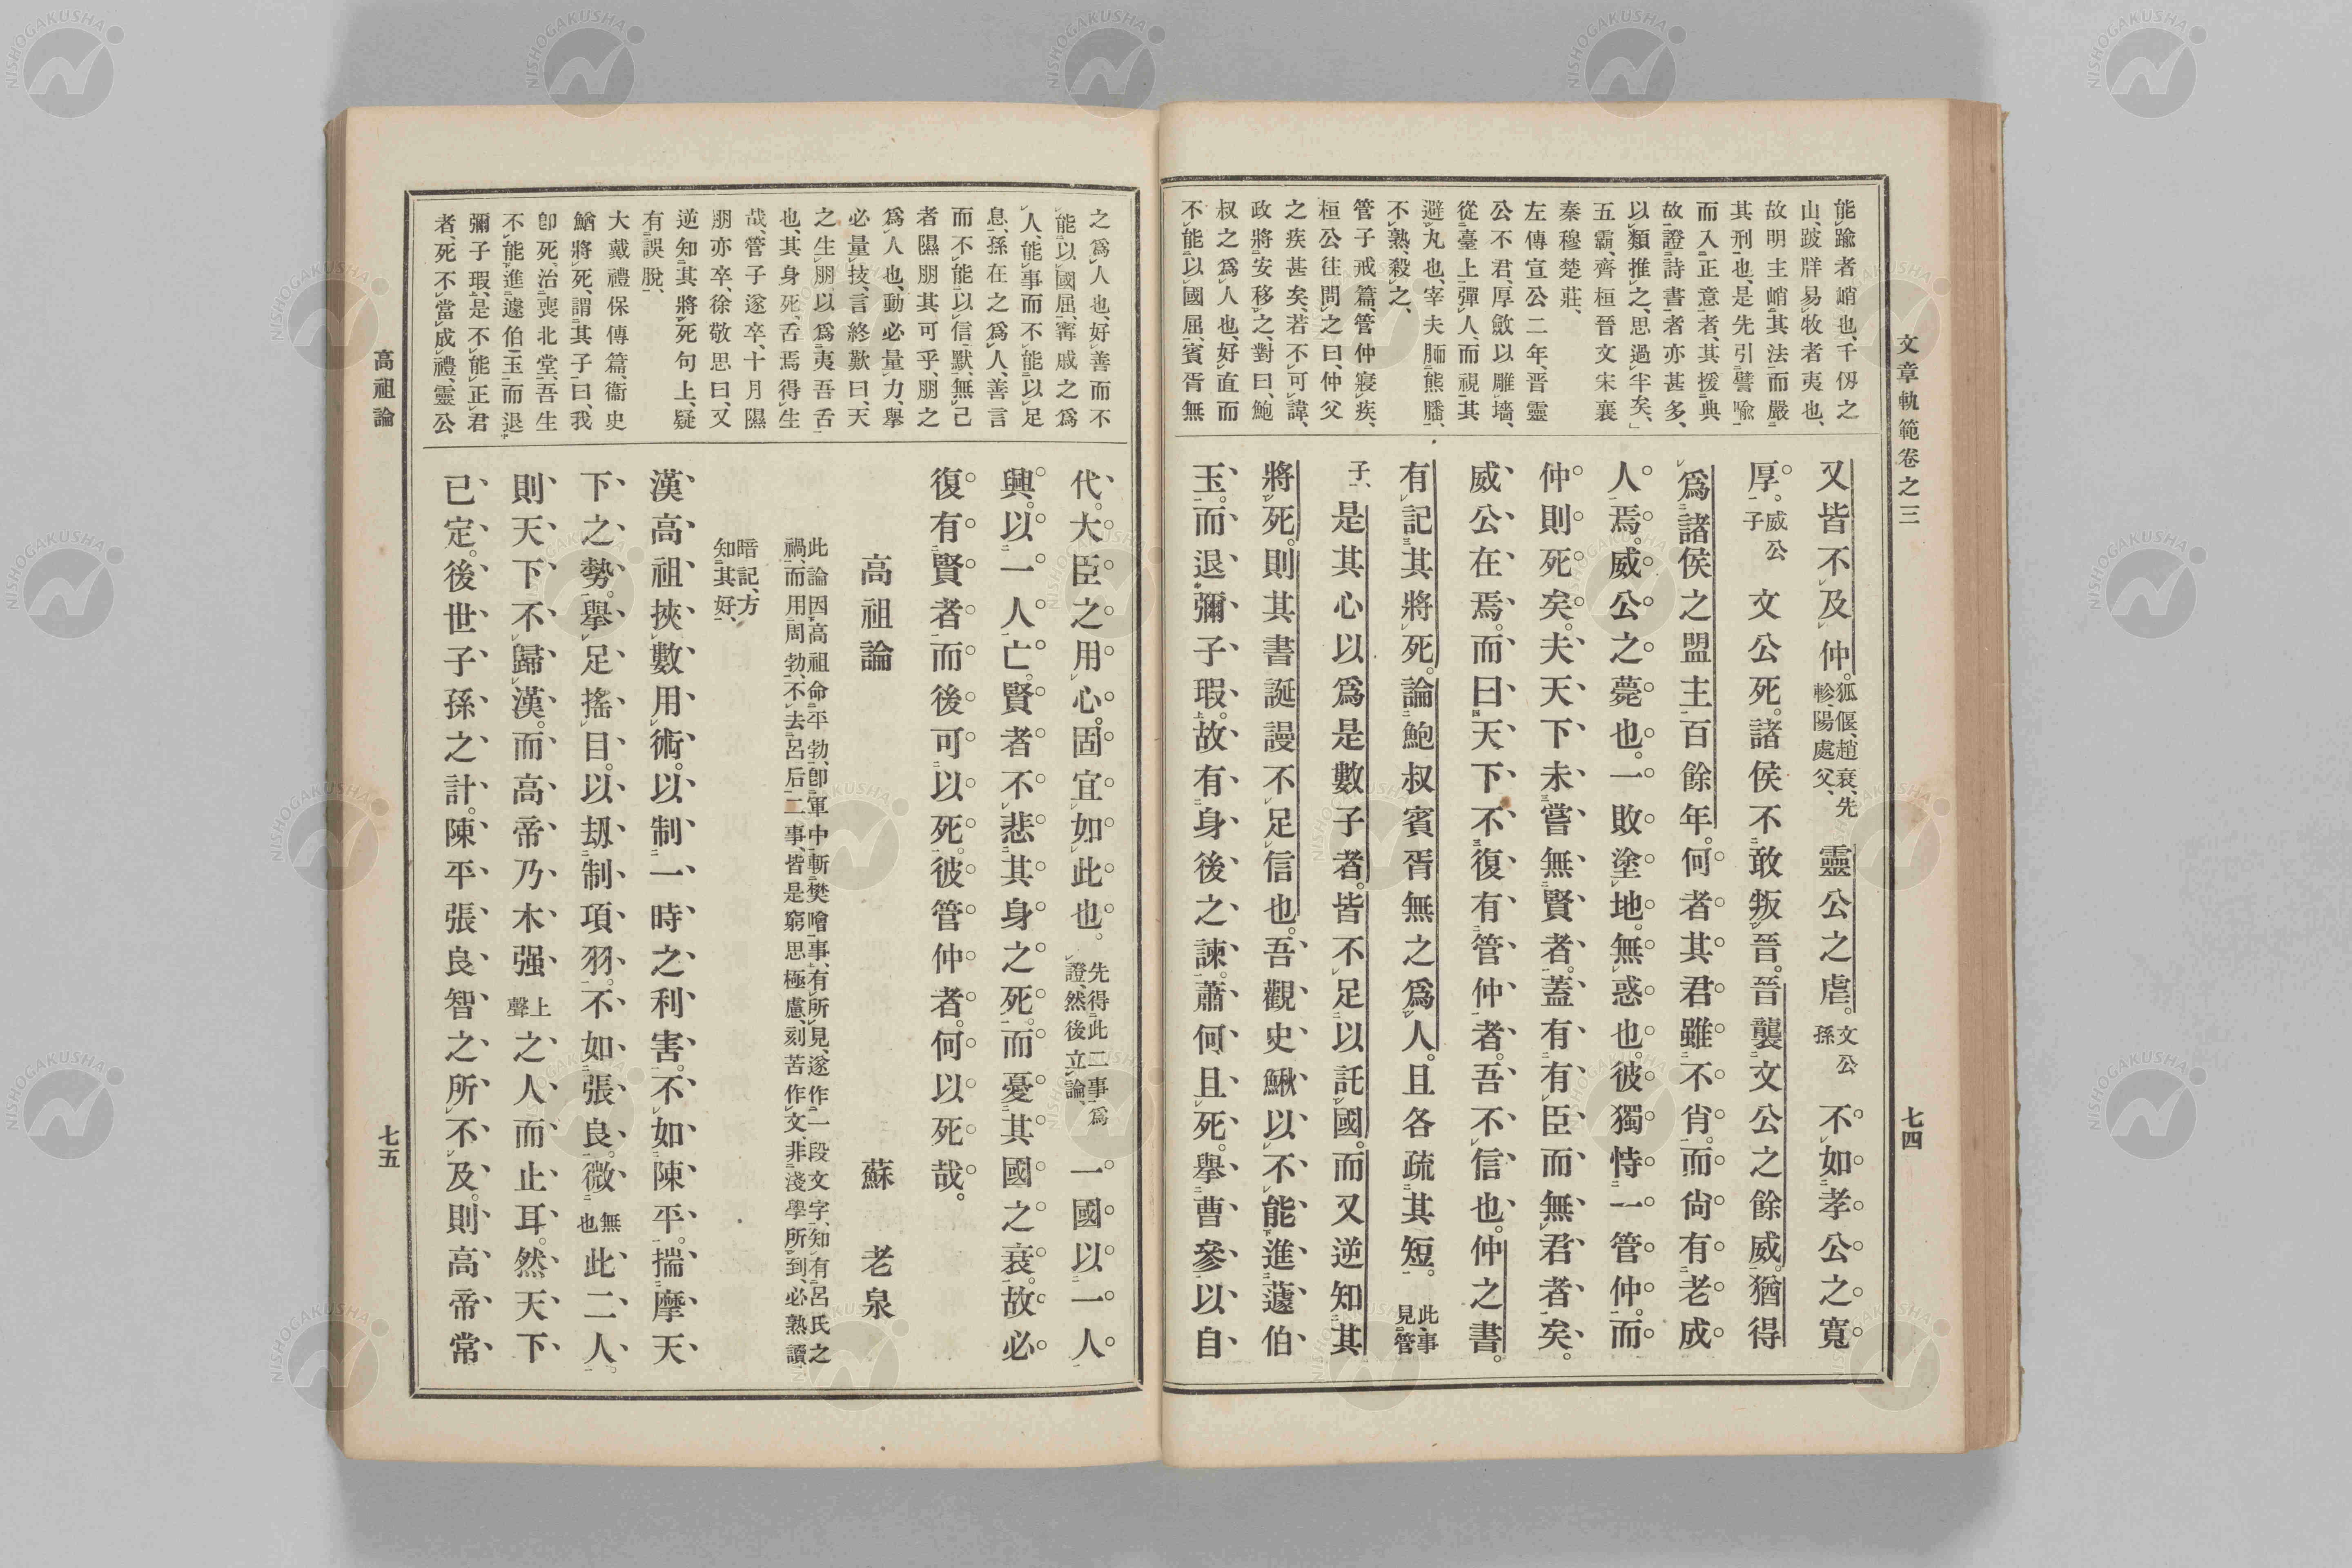 文章軌範卷之三
七四
能踰者峭也、千仭之
山、跛牂易牧者夷也、
故明主峭其法而嚴
其刑也、是先引譬喩
而入正意者、其援典
故、證詩書者亦甚多、
以類推之、思過半矣、」
五霸、齊桓晉文宋襄
秦穆楚莊、
左傳宣公二年、晉靈
公不君、厚斂以雕墻、
從臺上彈人、而視其
避丸也、宰夫胹熊膰、
不熟、殺之、
管子戒篇、管仲寢疾、
桓公往問之曰、仲父
之疾甚矣、若不可諱、
政將安移之、對曰、鮑
叔之爲人也、好直而
不能以國屈、賓胥無
又皆不及仲。狐偃、趙衰、先軫、陽處父、靈公之虐。文公孫不如孝公之寬
厚。威公子文公死。諸侯不敢叛晉。晉襲文公之餘威。猶得
爲諸侯之盟主百餘年。何者其君雖不肖。而尙有老成
人焉。威公之薨也。一敗塗地。無惑也。彼獨恃一管仲。而
仲則死矣。夫天下未嘗無賢者。蓋有有臣而無君者矣。
威公在焉。而曰天下不復有管仲者。吾不信也。仲之書。
有記其將死。論鮑叔賓胥無之爲人。且各疏其短。此事見管
子、是其心以爲是數子者。皆不足以託國。而又逆知其
將死。則其書誕謾不足信也。吾觀史鰍以不能進蘧伯
玉。而退彌子瑕。故有身後之諫。蕭何且死。擧曹參以自
之爲人也、好善而不
能以國屈、甯戚之爲
人、能事而不能以足
息、孫在之爲人、善言
而不能以信默、無已
者隰朋其可乎、朋之
爲人也、動必量力、擧
必量技、言終歎曰、天
之生朋、以爲夷吾舌
也、其身死、舌焉得生
哉、管子遂卒、十月隰
朋亦卒、徐敬思曰、又
逆知其將死句上、疑
有誤脫、
大戴禮保傳篇、衞史
鰌將死、謂其子曰、我
卽死、治喪北堂、吾生
不能進蘧伯玉、而退
彌子瑕、是不能正君
者、死不當成禮、靈公
代。大臣之用心。固宜如此也。先得此二事爲證、然後立論、一國以一人
興。以一人亡。賢者不悲其身之死。而憂其國之衰。故必
復有賢者。而後可以死。彼管仲者。何以死哉。
高祖論　蘇老泉
此論因高祖命平勃、卽軍中斬樊噲事、有所見、遂作一段文字、知有呂氏之
禍、而用周勃、不去呂后二事、皆是窮思極慮、刻苦作文、非淺學所到、必熟讀
暗記、方
知其好、
漢高祖挾數用術。以制一時之利害。不如陳平。揣摩天
下之勢。擧足搖目。以劫制項羽。不如張良。微無也此二人。
則天下不歸漢。而高帝乃木强上聲之人而止耳。然天下
已定。後世子孫之計。陳平張良智之所不及。則高帝常
高祖論
七五